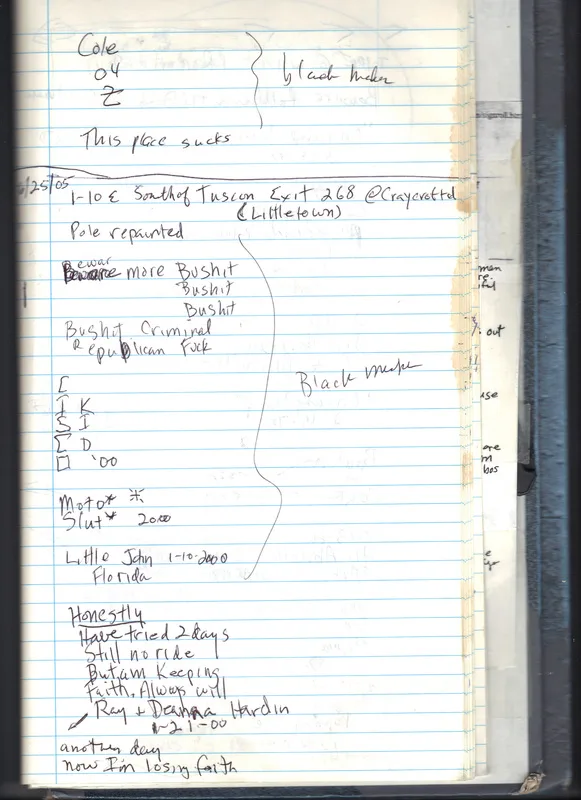 Cole
04
Z
black maker
This place sucks
/25/05
1-10 E South of Tuscon Exit 268 @Craycroft rd
(Littletown)
Pole repainted
Beware more Bushit
Bushit
Bushit
Bushit Criminal
Republican Fuck
[
I K
S I
[ D
□ '00
Black
Moto* *
Slut* 2000
Little John 1-10-2000
Florida
Honestly
Have tried 2 days
Still no ride
But am Keeping
Faith. Always will
Ray + Deanna Hardin
1-21-00
another day
now I'm losing faith
men
out
ase
ere
m
bos
e